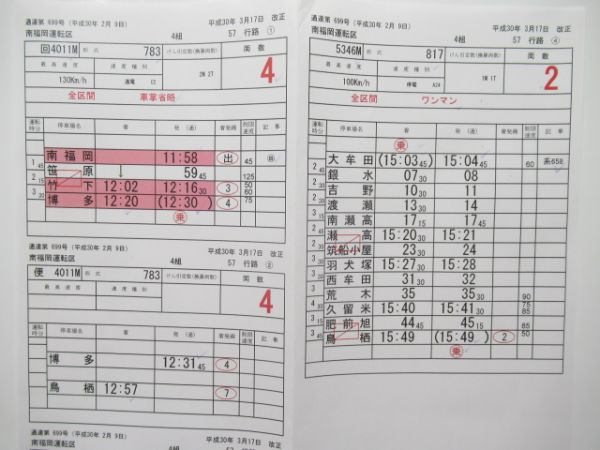 過達第 699号 (平成30年 2月 9日) 平成30年 3月17日 改正
南福岡運転区 4組 57 行路 ①
回4011M 形式 783 けん引定数(換算両数) 両数
最高速度 速度種別 2M 2T 4
130Km/h
全区間 車掌省略
運転時分 停車場名 着 発(通) 着発線 制限速度 記事
南福岡 11:58 出 45
1 45 笹原 ↓ 59 45 125
2 15 竹下 12:02 12:16 30 3 50 60
3 30 博多 12:20 (12:30) 4 75
乗
過達第 699号 (平成30年 2月 9日) 平成30年 3月17日 改正
南福岡運転区 4組 57 行路 ②
便 4011M 形式 783 けん引定数(換算両数) 両数
最高速度 速度種別 4
運転時分 停車場名 着 発(通) 着発線 制限速度 記事
博多 12:31 45 4
鳥栖 12:57 7
過達第 699号 (平成30年 2月 9日) 平成30年 3月17日 改正
南福岡運転区 4組 57 行路
過達第 699号 (平成30年 2月 9日) 平成30年 3月17日 改正
南福岡運転区 4組 57 行路 ④
5346M 形式 817 けん引定数(換算両数) 両数
最高速度 速度種別 1M 1T 2
100Km/h 停電 A24
全区間 ワンマン
運転時分 停車場名 着 発(通) 着発線 制限速度 記事
乗
大牟田 (15:03 45) 15:04 45 60 系658
銀水 07 30 08
吉野 10 11 30
渡瀬 13 30 14
南瀬高 17 15 17 45
瀬高 15:20 30 15:21
筑船小屋 23 30 24
羽犬塚 15:27 30 15:28
西牟田 31 30 32
荒木 35 35 30 90
久留米 15:40 15:41 30 75 85
肥前旭 44 45 45 15 85
鳥栖 15:49 (15:49) 2 50
乗